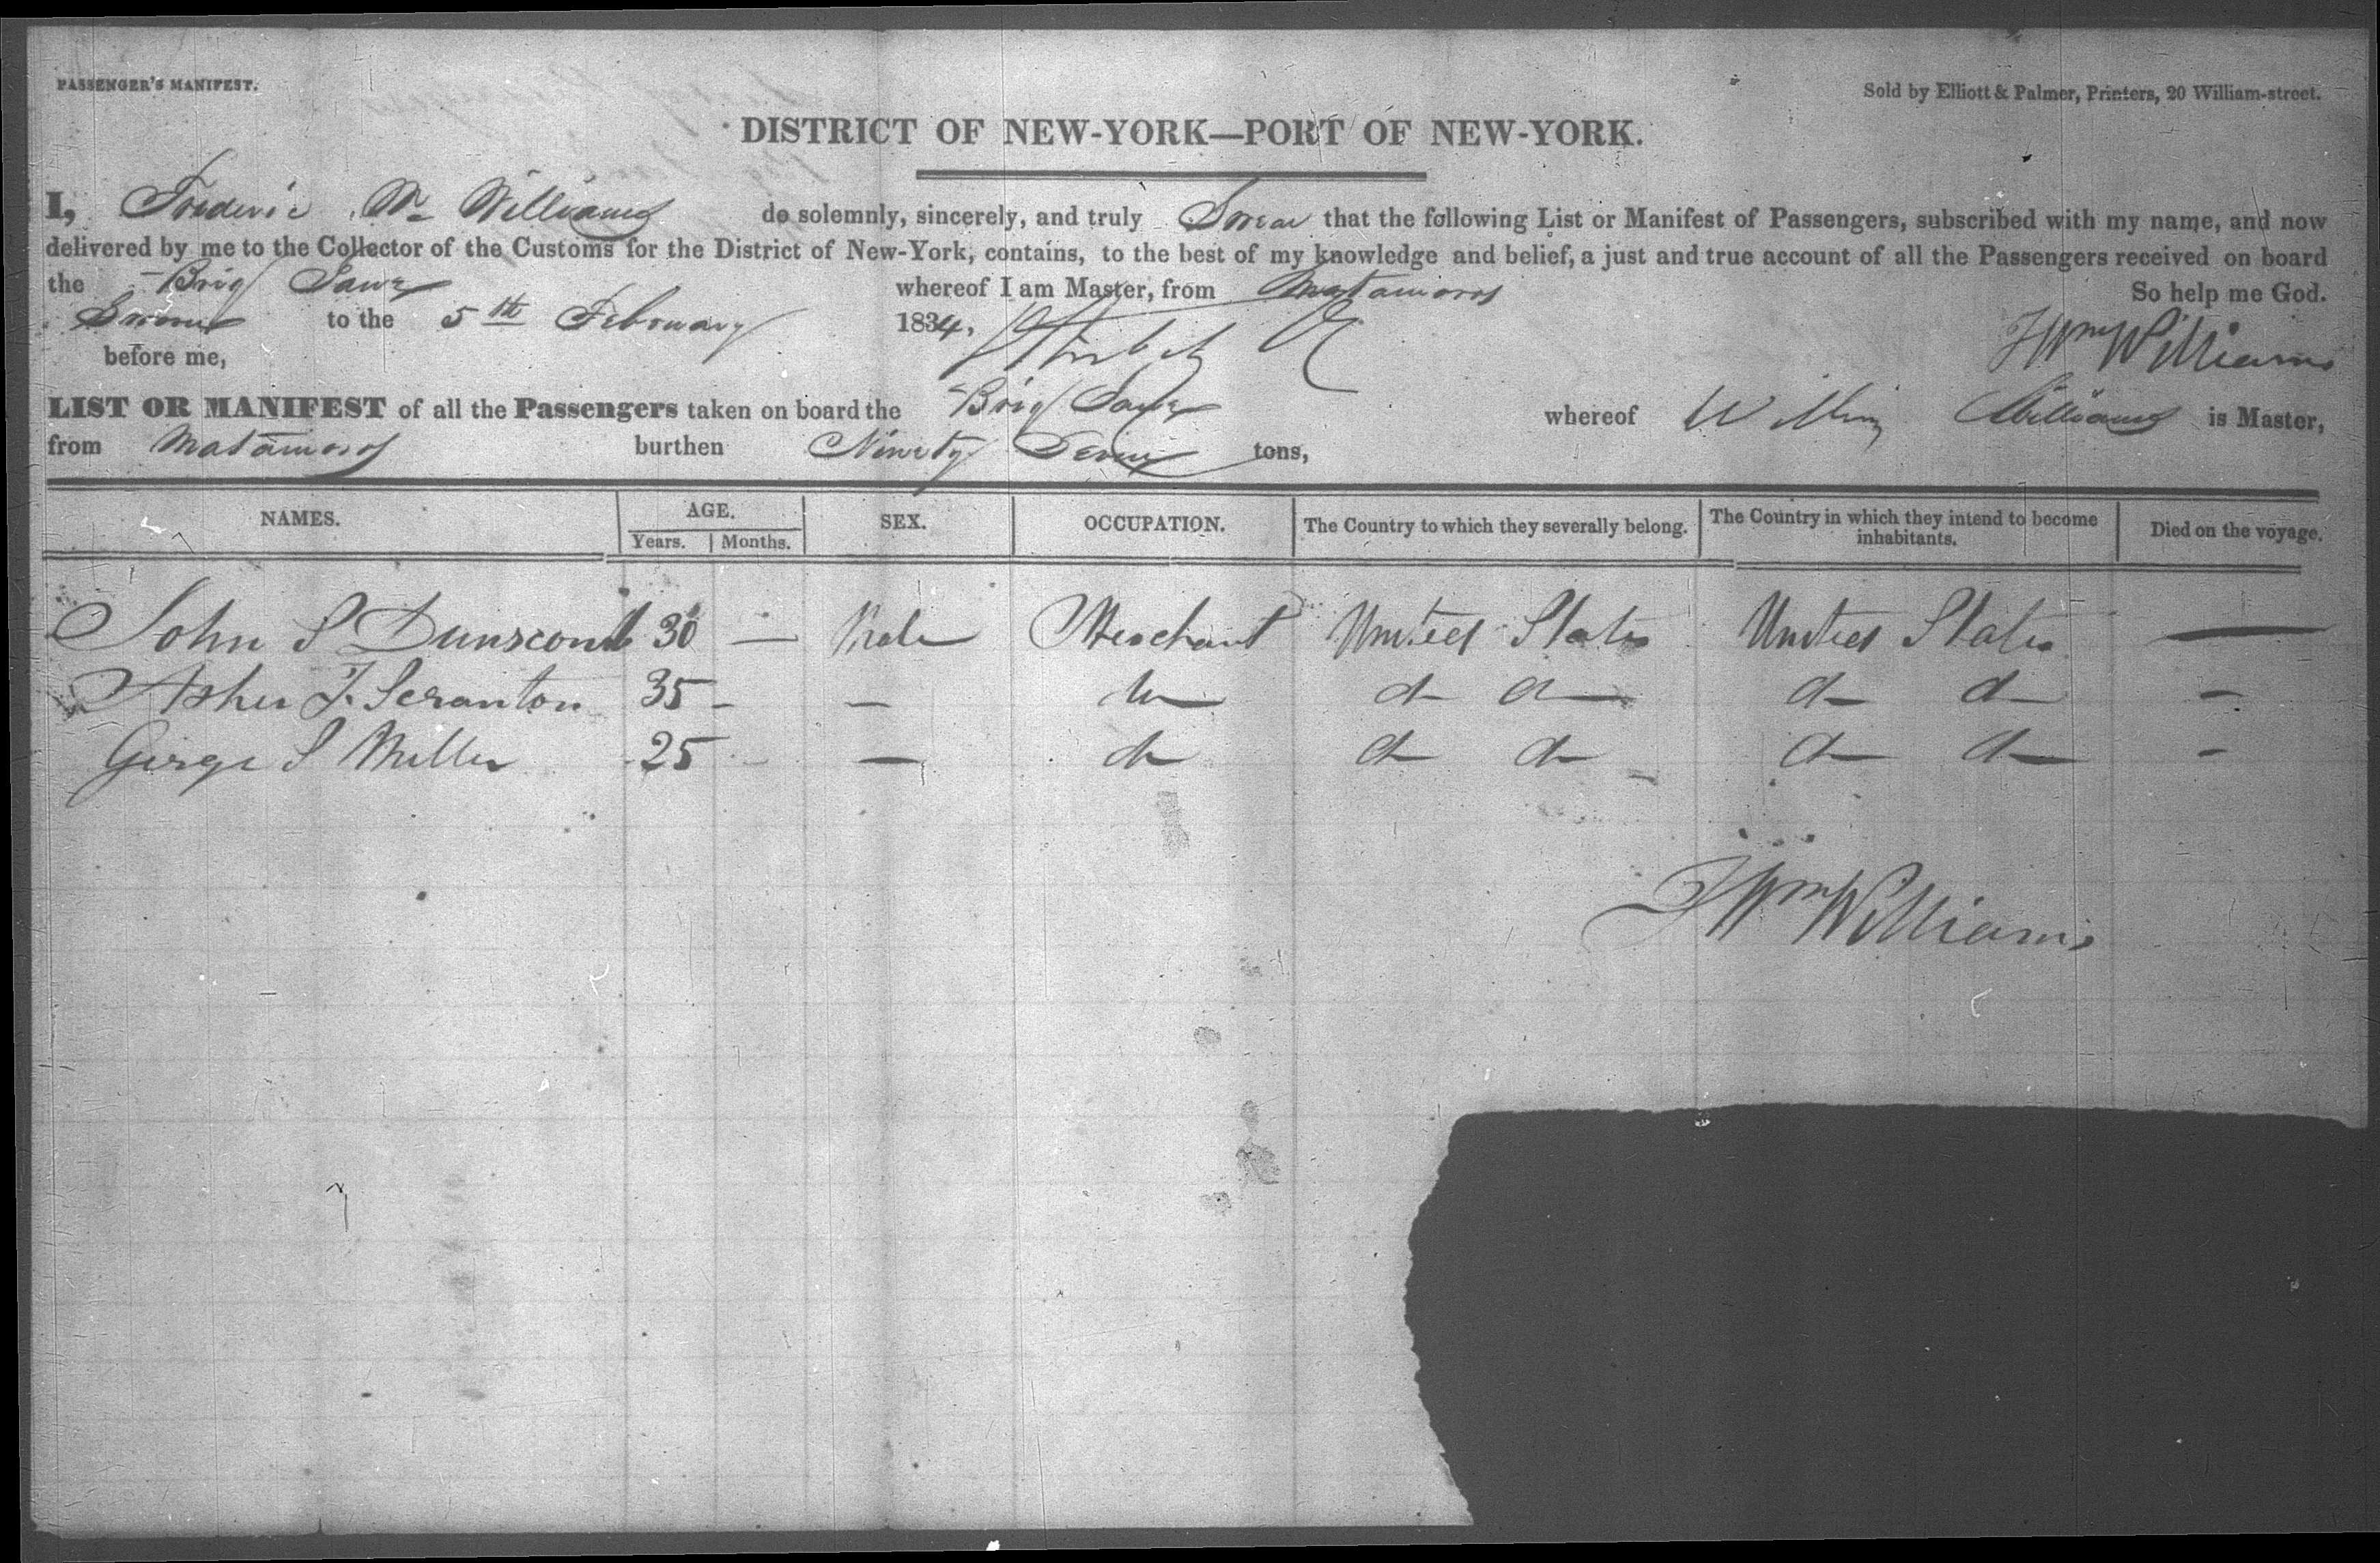 PASSENGER'S MANIFEST.
Sold by Elliott & Palmer, Printers, 20 William-street.
DISTRICT OF NEW-YORK—PORT OF NEW-YORK.
I, Frederic Wm Williams do solemnly, sincerely, and truly Swear that the following List or Manifest of Passengers, subscribed with my name, and now
delivered by me to the Collector of the Customs for the District of New-York, contains, to the best of my knowledge and belief, a just and true account of all the Passengers received on board
the Brig whereof I am Master, from Matamoros So help me God.
Sworn to the 5th February 1834,
F Wm Williams
before me,
LIST OR MANIFEST of all the Passengers taken on board the Brig whereof Williams is Master,
from Matamoros burthen Ninety Seven tons,
NAMES. AGE. SEX. OCCUPATION. The Country to which they severally belong. The Country in which they intend to become inhabitants. Died on the voyage.
Years. Months.
John S Dunscomb 30 — Male Merchant United States United States —
Asher T. Scranton 35 - — do do do do do -
George S Miller 25 - — do do do do do -
F Wm Williams